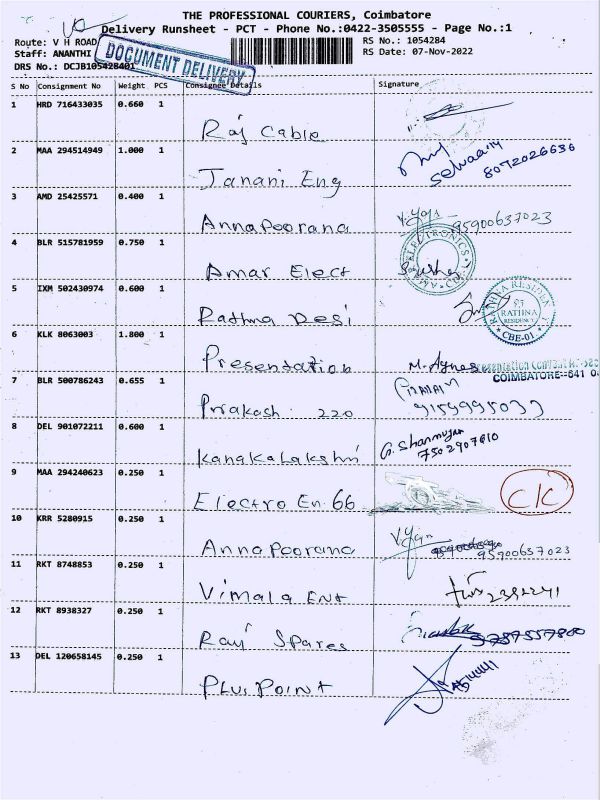 THE PROFESSIONAL COURIERS, Coimbatore
Delivery Runsheet - PCT - Phone No.:0422-3505555 - Page No.:1
Route: V H ROAD
RS No.: 1054284
Staff: ANANTHI
RS Date: 07-Nov-2022
DRS No.: DCJB105428401
DOCUMENT DELIVERY
S No Consignment No Weight PCS Consignee Details Signature
1 HRD 716433035 0.660 1
Raj Cable
2 MAA 294514949 1.000 1
Janani Eng
8072026636
3 AMD 25425571 0.400 1
Annapoorana 95900637023
4 BLR 515781959 0.750 1
ELECTRONICS
Amar Elect
5 IXM 502430974 0.600 1
Rathna Resi
RATHNA RESIDENCY
RATHNA
RESIDENCY
CBE-01
6 KLK 8063003 1.800 1
Presentation M. Agnes
COIMBATORE-641 0
7 BLR 500786243 0.655 1
Prrakash 220
8 DEL 901072211 0.600 1
G. Shanmugam
7502907610
Kanakalakshmi
9 MAA 294240623 0.250 1
Electro En. 66
C/C
10 KRR 5280915 0.250 1
Annapoorana 95900637023
11 RKT 8748853 0.250 1
Vimala Ent
12 RKT 8938327 0.250 1
Raj Spares 9787557800
13 DEL 120658145 0.250 1
Plus Point